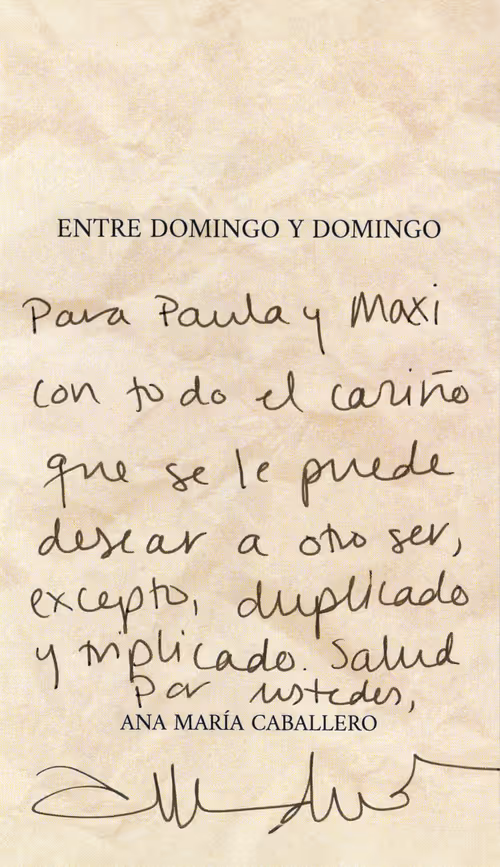 ENTRE DOMINGO Y DOMINGO
Para Paula y Maxi
con todo el cariño
que se le puede
desear a otro ser,
excepto, duplicado
y triplicado. Salud
por ustedes,
ANA MARÍA CABALLERO